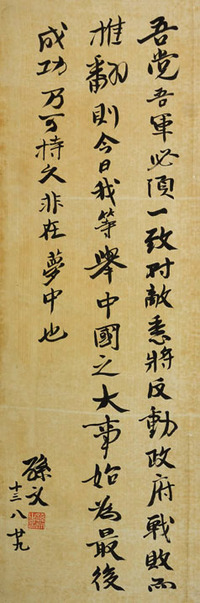 吾党吾軍必須一致对敵悉將反動政府戰敗而
推翻則今日我等舉中國之大事始為最後
成功乃可持久非在夢中也
孫文
十三 八 廿九